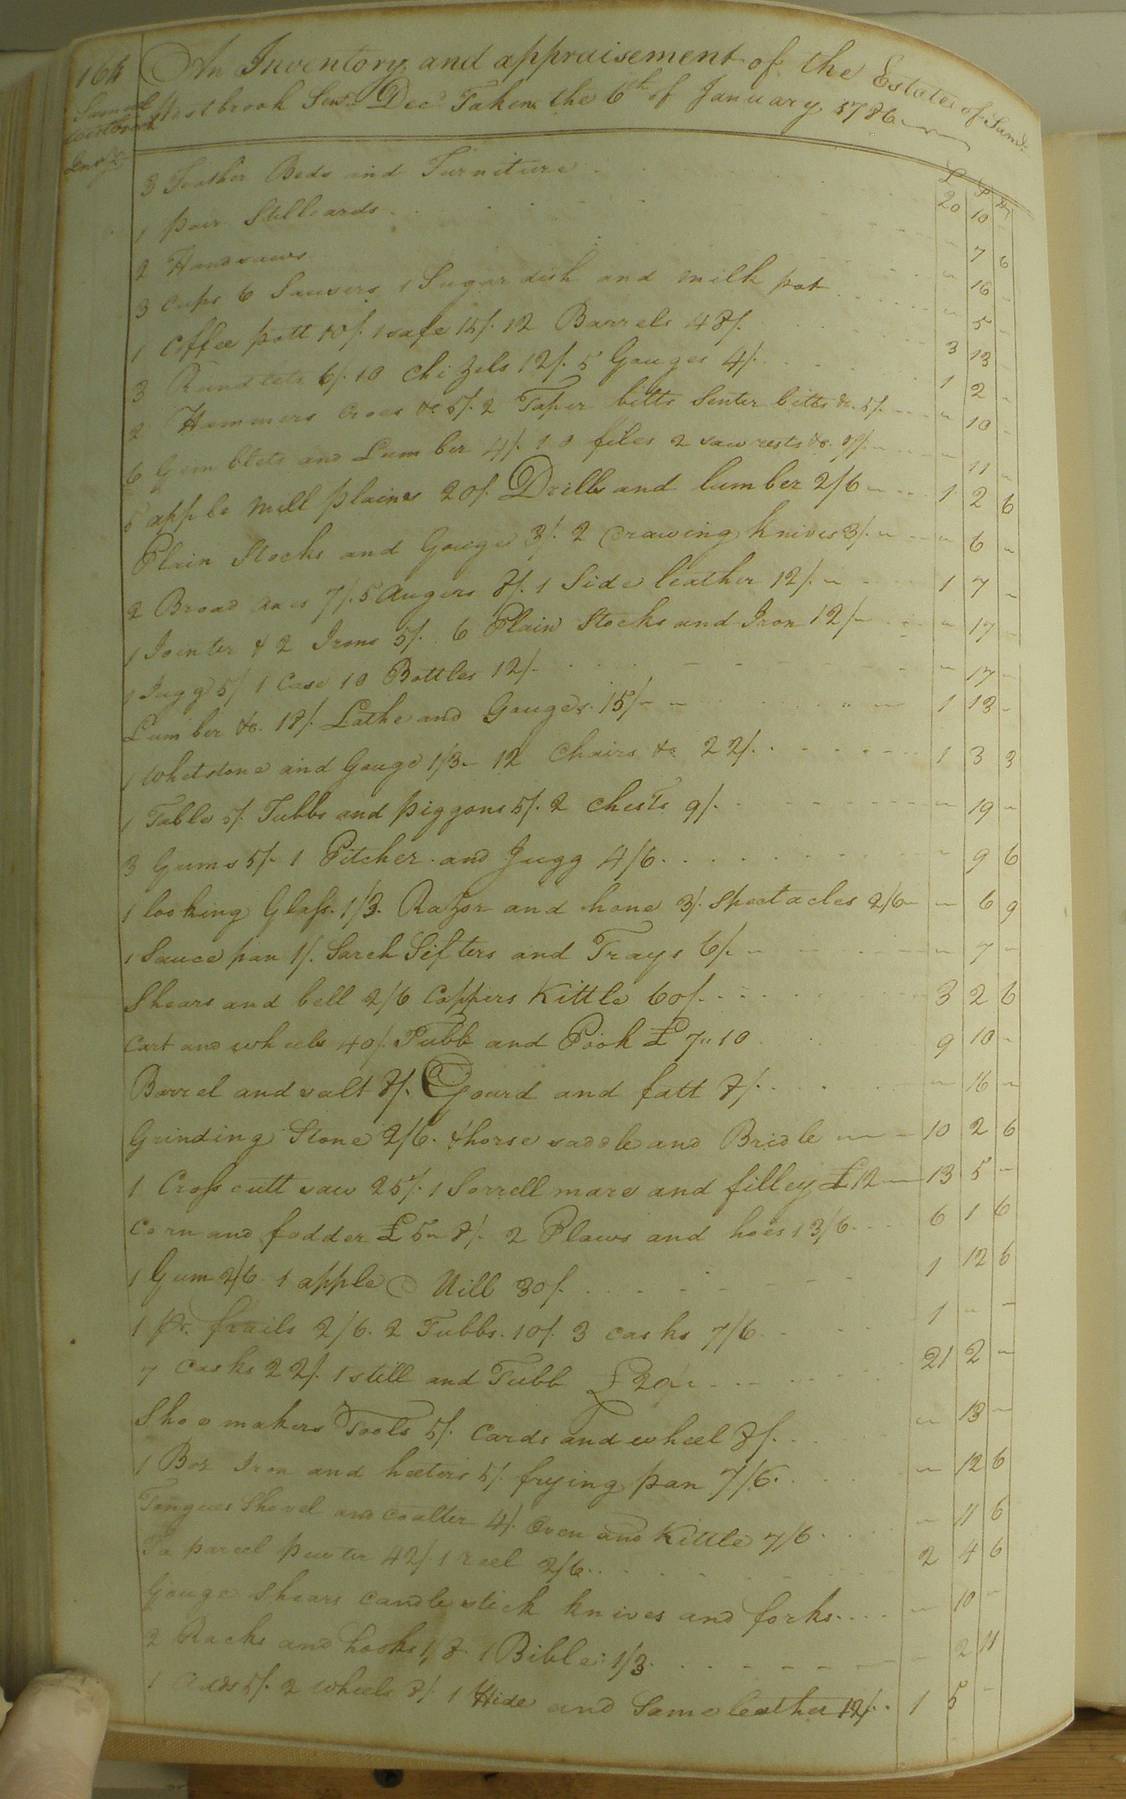 164
An Inventory and appraisement of the Estate of Saml.
Westbrook Senr. Decd. Taken the 6th of January 1786
Samuel
Westbrook
Invy.
£ S D
3 Feather Beds and Furniture 20 10 -
1 pair Stilleards - 7 6
2 Handsaws - 16 -
3 Cups 6 Sausers 1 Sugar dish and milk pot - 5 -
1 Coffee pott 10/. 1 safe 15/. 12 Barrels 48/. 3 13 -
3 Rundlets 6/. 10 Chizels 12/. 5 Gouges 4/. 1 2 -
2 Hammers Croes &c 5/. 2 Taper bitts Senter bitts &c. 5/. - 10 -
6 Gemblets and Lumber 4/. 10 files 2 saw rests &c. 7/. - 11 -
5 apple mill plaines 20/. Drills and lumber 2/6 1 2 6
Plain Stocks and Gouges 3/. 2 Drawing knives 3/. - 6 -
2 Broad axes 7/. 5 Augers 8/. 1 Side leather 12/. 1 7 -
1 Jointer & 2 Irons 5/. 6 Plain Stocks and Iron 12/- - 17 -
1 Jugg 5/ 1 Case 10 Bottles 12/- - 17 -
Lumber &c. 18/. Lathe and Gouges 15/- 1 13 -
1 Whetstone and Gouge 1/3 - 12 Chairs &c 22/. 1 3 3
1 Table 5/. Tubbs and piggons 5/. 2 Chests 9/. - 19 -
3 Gums 5/- 1 Pitcher and Jugg 4/6 - 9 6
1 looking Glass 1/3. Razor and hone 3/. Spectacles 2/6 - 6 9
1 Sauce pan 1/. Sarch Sifters and Trays 6/. - 7 -
Shears and bell 2/6 Coppers Kittle 60/. 3 2 6
Cart and wheels 40/. Tubb and Pook £7"10 9 10 -
Barrel and salt 8/. Gourd and fatt 8/. - 16 -
Grinding Stone 2/6. 1 horse saddle and Bridle 10 2 6
1 Cross cutt saw 25/. 1 Sorrell mare and filley £12 13 5 -
Corn and fodder £5 " 8/. 2 Plaws and hoes 13/6 6 1 6
1 Gum 2/6 1 apple Mill 30/. 1 12 6
1 pr. frails 2/6. 2 Tubbs. 10/. 3 casks 7/6 1 - -
7 Casks 22/. 1 still and Tubb £20 21 2 -
Shoemakers Tools 5/. Cards and wheel 8/. - 13 -
1 Box Iron and heeters 5/. frying pan 7/6. - 12 6
Tongues Shovel and coalter 4/. Oven and Kittle 7/6. - 11 6
To parcel pewter 42/. 1 reel 2/6 2 4 6
Gouge shears candlestick knives and forks - 10 -
2 Racks and hooks 1/8 1 Bible 1/3. - 2 11
1 Adds 5/. 2 wheels 8/. 1 Hide and Some leather 12/. 1 5 -